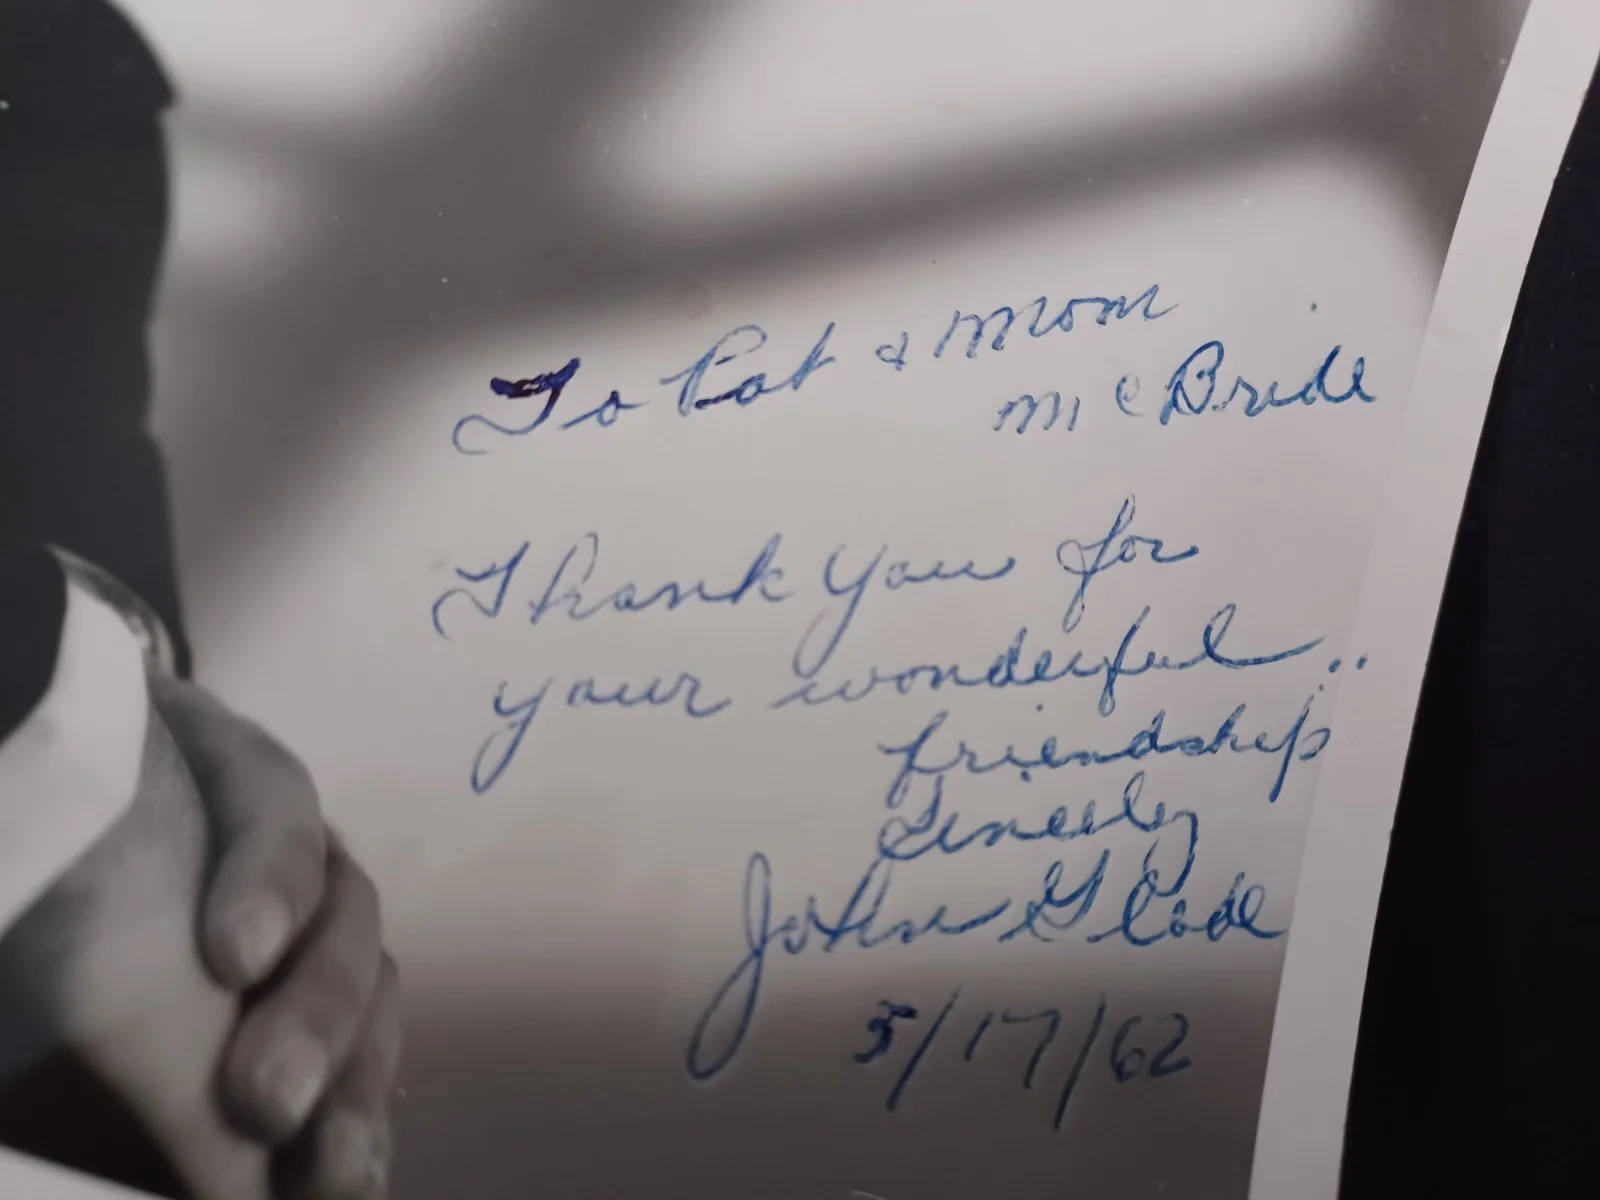 To Pat & Mom
McBride
Thank you for
your wonderful..
friendship
Sincerely
John Glade
5/17/62